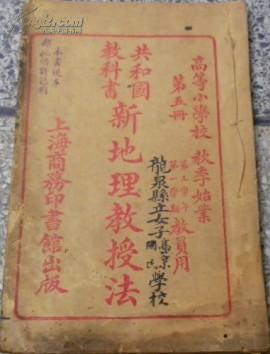 高等小學校 秋季始業
第五冊
第三學年
第一學期
教員用
龍泉縣立女子高京國民學校
共和國
教科書
新地理教授法
上海商務印書館出版